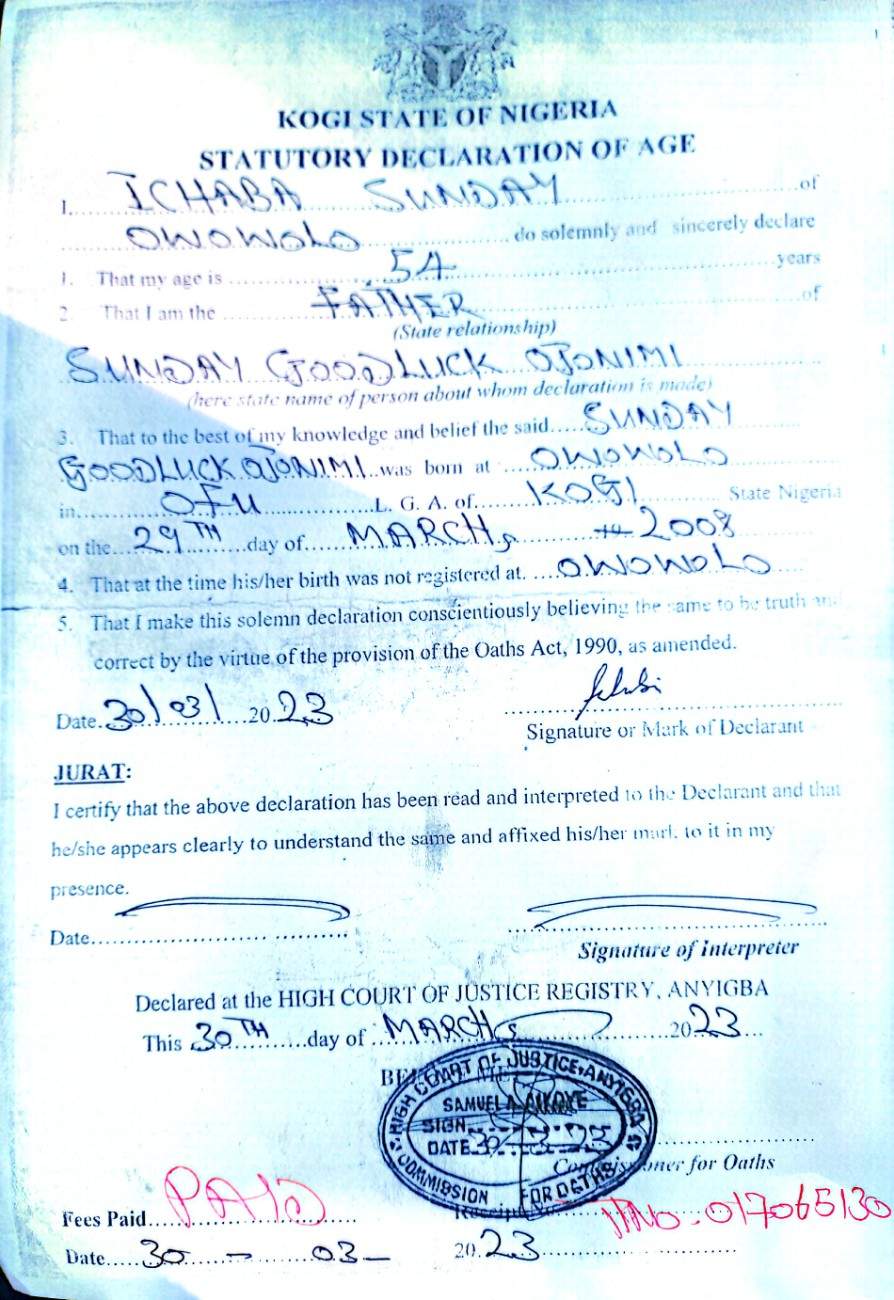 KOGI STATE OF NIGERIA
STATUTORY DECLARATION OF AGE
I, ICHABA SUNDAY of
OWOWOLO do solemnly and sincerely declare
1. That my age is 54 years
2. That I am the FATHER of
(State relationship)
SUNDAY GOODLUCK OJONIMI
(here state name of person about whom declaration is made)
3. That to the best of my knowledge and belief the said SUNDAY
GOODLUCK OJONIMI was born at OWOWOLO
in OFU L. G. A. of KOGI State Nigeria
on the 29TH day of MARCH, 2008
4. That at the time his/her birth was not registered at OWOWOLO
5. That I make this solemn declaration conscientiously believing the same to be truth and
correct by the virtue of the provision of the Oaths Act, 1990, as amended.
Date 30/03/ 2023
Signature or Mark of Declarant
JURAT:
I certify that the above declaration has been read and interpreted to the Declarant and that
he/she appears clearly to understand the same and affixed his/her mark to it in my
presence.
Date
Signature of Interpreter
Declared at the HIGH COURT OF JUSTICE REGISTRY, ANYIGBA
This 30TH day of MARCH, 2023
HIGH COURT OF JUSTICE, ANYIGBA
SAMUEL
SIGN
DATE 30
COMMISSION FOR OATHS
Commissioner for Oaths
Fees Paid PAID
No. 017065130
Date 30 - 03 - 2023